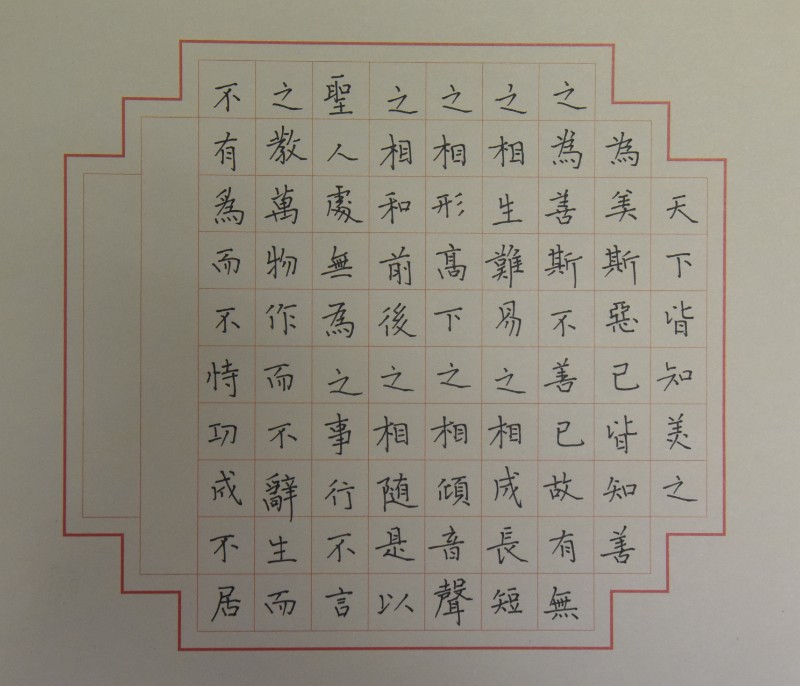 天下皆知美之
為美斯惡已皆知善
之為善斯不善已故有無
之相生難易之相成長短
之相形高下之相傾音聲
之相和前後之相随是以
聖人處無為之事行不言
之教萬物作而不辭生而
不有為而不恃功成不居